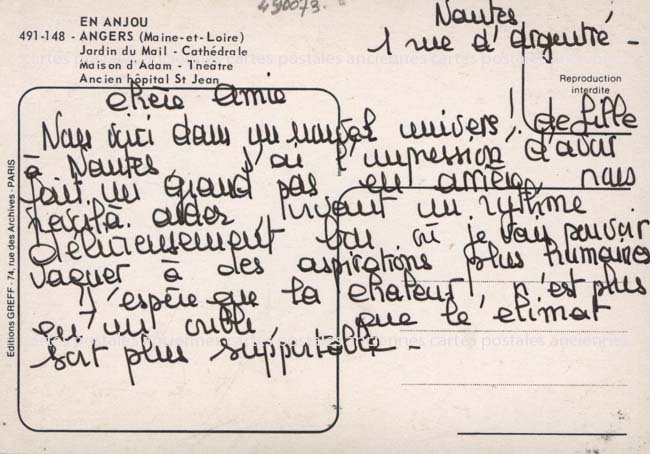 490073.
EN ANJOU
491-148 - ANGERS (Maine-et-Loire)
Jardin du Mail - Cathédrale
Maison d'Adam - Théâtre
Ancien hôpital St Jean
Nantes
1 rue d'Argentré -
Reproduction
interdite
cartes postales anciennes cartes postales anciennes cartes postales anciennes
chère Amie
Nous voici dans un nouvel univers! de fille
à Nantes j'ai l'impression d'avoir
fait un grand pas en arrière, nous
vivant un rythme
délicieusement bas où je vais pouvoir
vaquer à des aspirations plus humaines
J'espère que la chaleur n'est plus
qu'un oubli que le climat
soit plus supportable -
cartes postales anciennes cartes postales anciennes cartes postales anciennes
Editions GREFF - 74, rue des Archives - PARIS